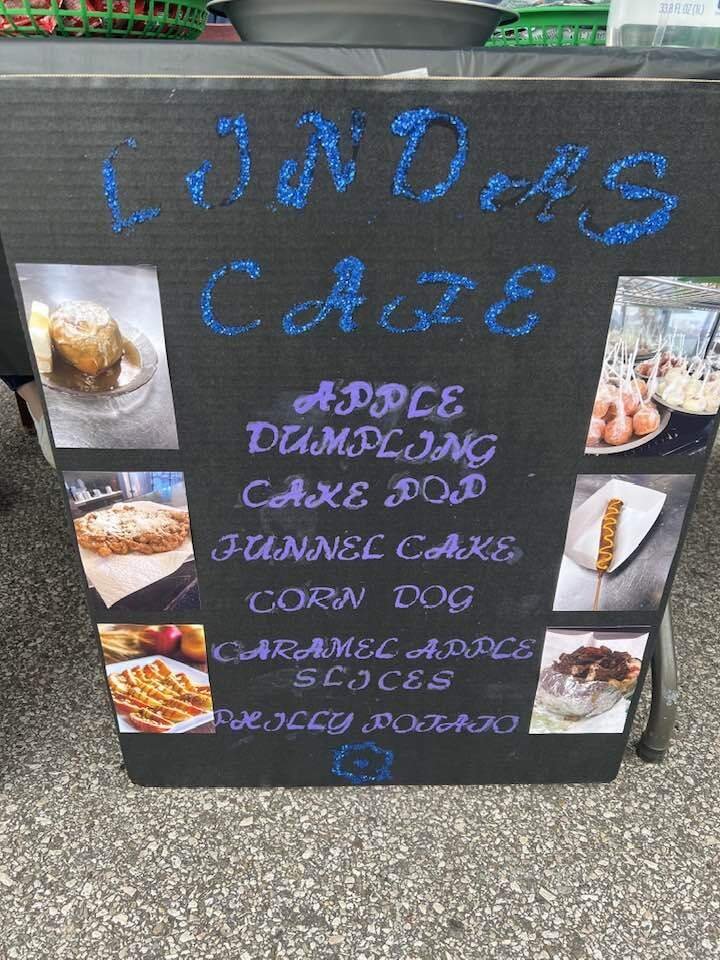 33.8 FL OZ (1L)
LINDAS
CAFE
APPLE
DUMPLING
CAKE POP
FUNNEL CAKE
CORN DOG
CARAMEL APPLE
SLICES
PHILLY POTATO